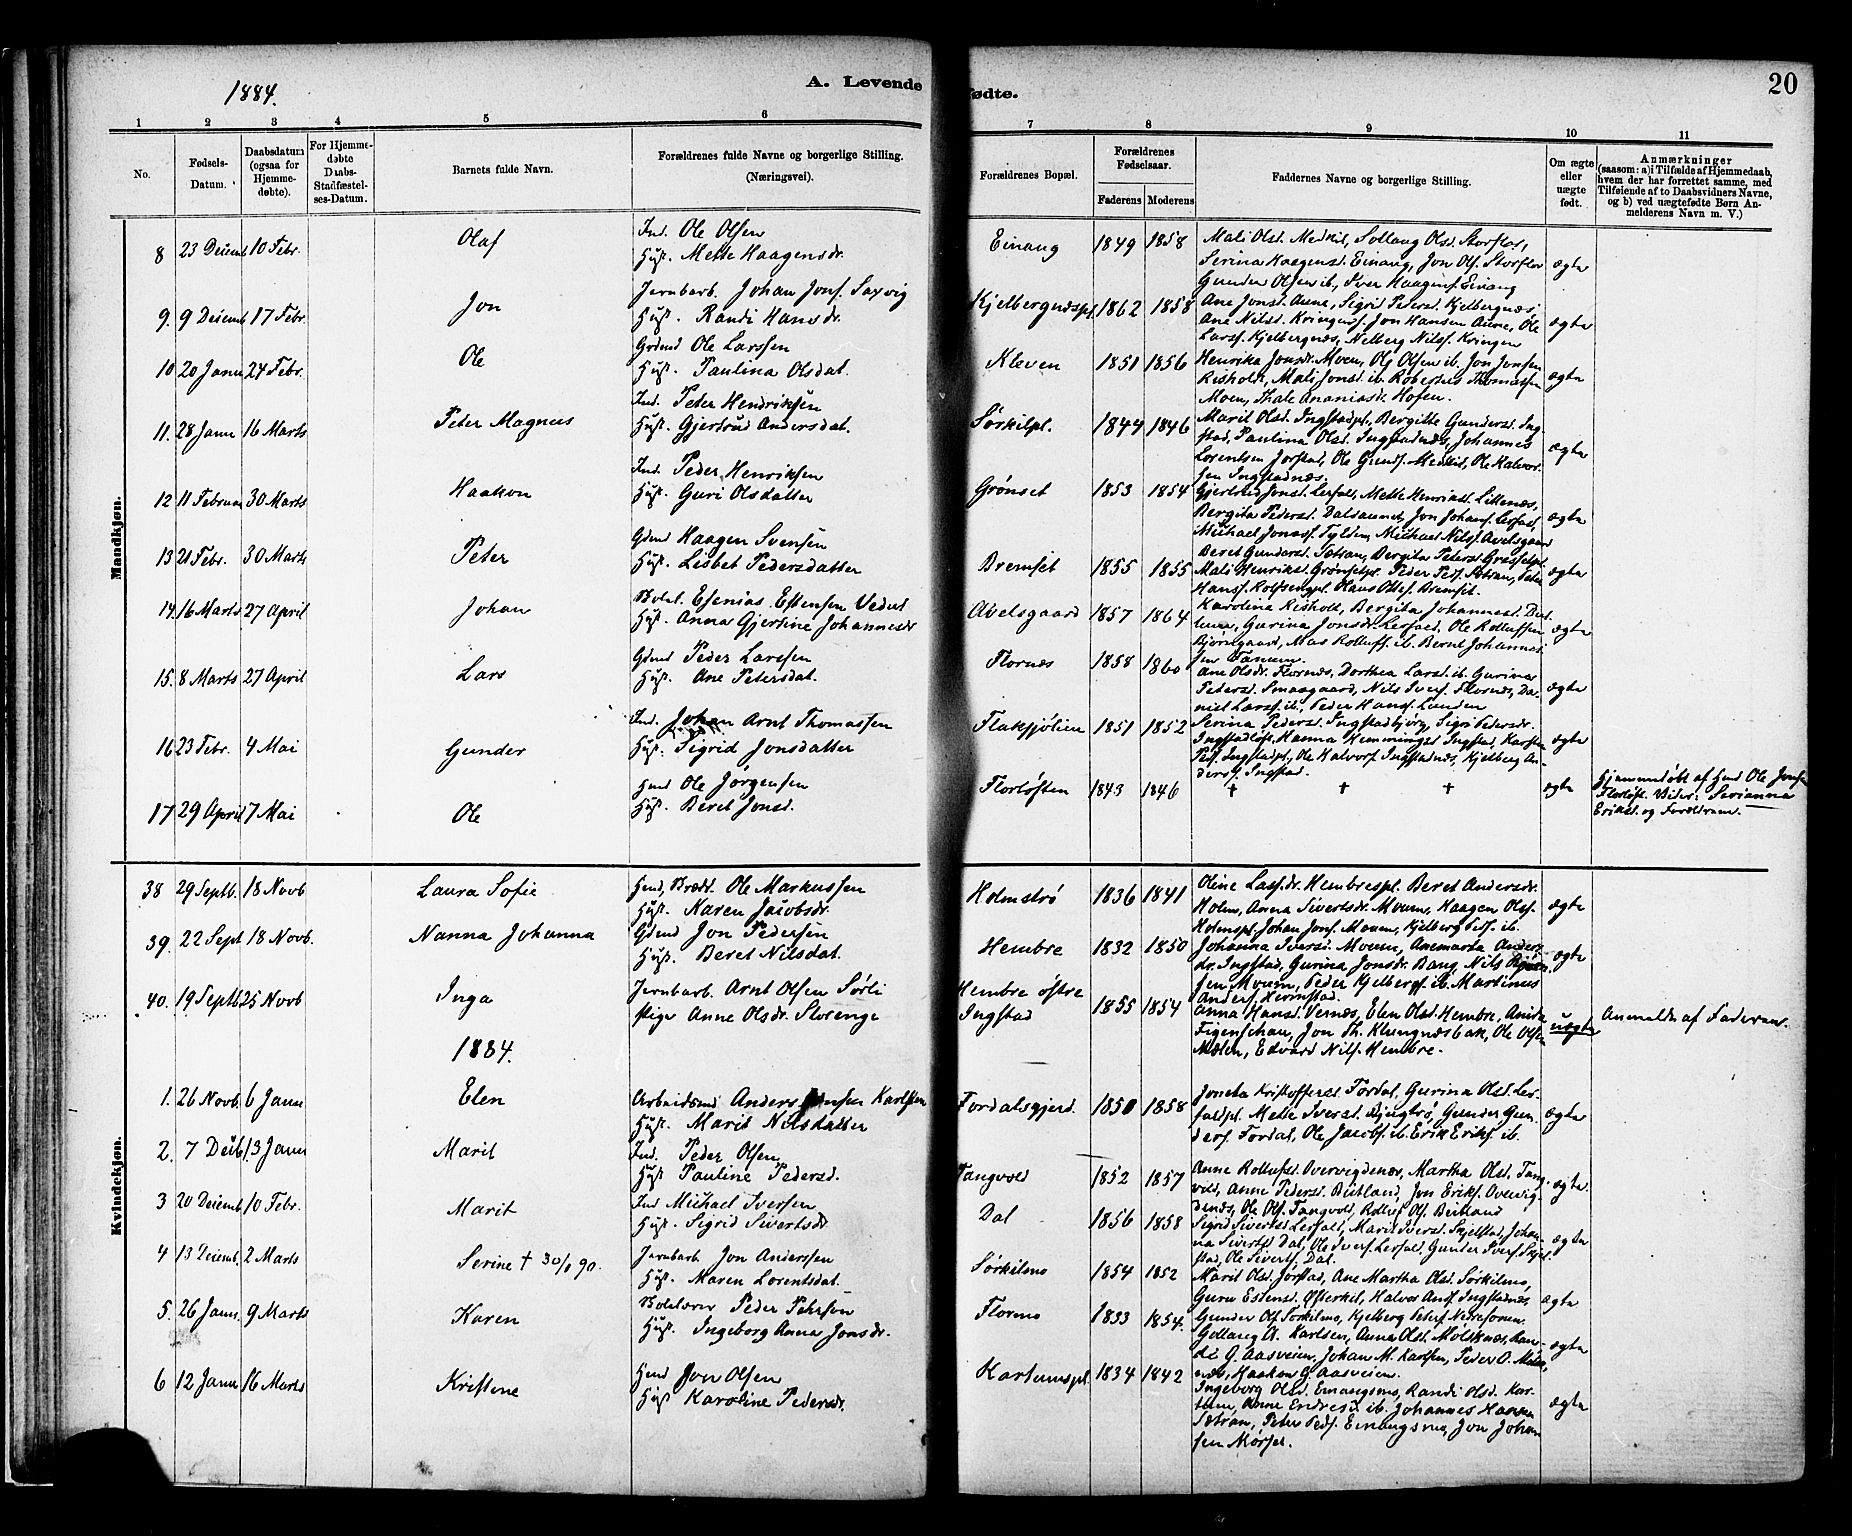 1884.
A. Levende
Fødte.
20
1 2 3 4 5 6 7 8 9 10 11
No.
Fødsels-Datum.
Daabsdatum (ogsaa for Hjemmedøbte).
For Hjemmedøbte Daabs-Stadfæstelses-Datum.
Barnets fulde Navn.
Forældrenes fulde Navne og borgerlige Stilling. (Næringsvei).
Forældrenes Bopæl.
Forældrenes Fødselsaar.
Faderens Moderens
Faddernes Navne og borgerlige Stilling.
Om ægte eller uægte født.
Anmærkninger
(saasom: a) i Tilfælde af Hjemmedaab, hvem der har forrettet samme, med Tilføiende af to Daabsvidners Navne, og b) ved uægtefødte Børn Anmelderens Navn m. V.)
Mandkjøn.
8 23 Decemb 10 Febr. Olaf Ind. Ole Olsen
Hust. Mette Haagensdr. Einang 1849 1858 ægte
Mali Olsd. Medkil, Sollaug Olsd. Storflor,
Serina Haagensd. Einang, Jon Ols. Storflor
Gunder Olsen ib, Iver Haagens. Einang
9. 9 Decemb 17 Febr. Jon Jernbarb. Johan Jons. Saxvig
Hust. Randi Hansdr. Kjelbergnæspl 1862 1858 ægte
Ane Jonsd. Aune, Sigrid Pedersd. Kjelbergnæs,
Ane Nilsd. Kringen, Jon Hansen Aune, Ole
Larss. Kjelbergnæs, Nelberg Nilss. Kringen
10 20 Janu 24 Febr. Ole Grdmd Ole Larssen
Hust. Paulina Olsdat. Kleven 1851 1856 ægte
Henrika Jonsdr. Moen, Ole Olsen ib. Jon Jonsen
Risholt, Mali Jonsd. ib. Robertus Thomassen
Moen, Thale Ananiasdr. Hofen.
11. 28 Janu 16 Marts Peter Magnus Ind. Peter Hendriksen
Hust. Gjertrud Andersdat. Sørkilpl. 1844 1846 ægte
Marit Olsd. Ingstadpl., Bergitte Gundersd. Ing-
stad, Paulina Olsd. Ingstadnæs, Johannes
Lorentsen Jorstad, Ole Gunds. Medkil, Ole Halvor-
sen Ingstadnæs.
12 11 Februar 30 Marts Haakon Ind. Peder Henriksen
Hust. Guri Olsdatter Grønset 1853 1854 ægte
Gjertrud Jonsd. Lerfald, Mette Henriksd. Littenæs,
Bergita Pedersd. Dalsaunet, Jon Johans. Lerfald,
Michael Jonass. Fylden, Michael Nils. Avelsgaard
13 21 Febr. 30 Marts Peter Gdmd Haagen Svensen
Hust. Lisbet Pedersdatter Bremset 1855 1855 ægte
Beret Gundersd. Sætran, Bergita Petersd. Græsletpl
Mali Henriksd. Grønsetpl. Peder Peds. Sætran, Peter
Hans. Rolfsengpl. Hans Ottes. Bremset
14. 16 Marts 27 April Johan Bolel. Esenias Estensen Vedul
Hust. Anna Gjertine Johannesdr Avelsgaard 1857 1864 ægte
Karolina Risholt, Bergita Johannesd. Dal-
Gurina Jonsdr. Lerfald, Ole Rollufsen
Bjørngaard, Mas Rolluss. ib. Bernt Johannes-
sen Tanem.
15. 8 Marts 27 April Lars Gdmd Peder Larssen
Hust. Ane Petersdat. Flornæs 1858 1860 ægte
Ane Olsdr. Flornæs, Dorthea Larsd. ib. Gurina
Pedersd. Smaagaard, Nils Ivers. Flornæs, Da-
niel Larss. ib, Peder Hans. Lunden
16 23 Febr. 4 Mai Gunder Ind. Johan Arnt Thomassen
Hust. Sigrid Jonsdatter Flaksjølien 1851 1852 ægte
Serina Pedersd. Ingstadbjørg, Sigri Pedersdr.
Ingstadløft, Hanna Hemmingsd. Ingstad, Karsten
Peds. Ingstadpl., Ole Halvors. Ingstadnæs, Kjelberg An-
ders. Ingstad.
17 29 April 7 Mai Ole Hmd Ole Jørgensen
Hust. Beret Jonsd. Florløften 1843 1846 + + + ægte
Hjemmedøbt af Hmd Ole Jonsen
Florløft. Vidner: Serianna
Eriksd. og Forældrene.
Kvindekjøn.
38 29 Septb. 18 Novb Laura Sofie Hmd, Brædd. Ole Markussen
Hust. Karen Jacobsdr. Holmstrø 1836 1841 ægte
Oline Lassdr. Hembrespl. Beret Andersdr.
Holm, Anna Sivertsdr. Moum, Haagen Olss.
Holmspl. Johan Jons. Mouem, Kjelberg Peds. ib.
39. 22 Sept 18 Novb. Nanna Johanna Gdmd Jon Pedersen
Hust. Beret Nilsdat. Hembre 1832 1850 ægte
Johanna Iversd. Moum, Anemarta Anders-
dr. Ingstad, Gurina Jonsdr. Bang, Nils
sen Moum, Peder Kjelbergs. ib. Martinus
Anders. Hermstad.
40. 19 Septb 25 Novb Inga Jernbarb. Arnt Olsen Sørli
Pige Anne Olsdr. Storenge Hembre østre
Ingstad 1855 1854 uægte
Anna Hansd. Vernes, Elen Olsd. Hembre,
Figenschau, Jon Th. Klungnæsbak, Ole Olsen
Mælen, Edvard Nils. Hembre.
Anmeldt af Faderen.
1884.
1. 26 Novb. 6 Janu Elen Arbeidsmd Anders Karlsen
Hust. Marit Nilsdatter Fordalsgjerd. 1850 1858 ægte
Joneta Kristoffersd. Fordal, Gurina Olsd. Ler-
faldpl. Mette Iversd. Bjugtrø, Gunder Gun-
ders. Fordal, Ole Jacobs. ib. Erik Eriks. ib.
2. 7 Decb. 13 Janu Marit Ind. Peder Olsen
Hust Pauline Pedersd. Tangvold 1852 1857 ægte.
Anne Rollufsd. Overvigdenæs, Martha Olsd. Tang-
vild, Anne Pedersd. Beitland, Jon Eriks. Overvig-
denæs, Ole Ols. Tangvold, Rolluf Ols. Beitland
3 20 Decemb 10 Febr. Marit Ind Michael Iversen
Hust. Sigrid Sivertsdr Dal 1856 1858 ægte
Sigrid Sivertsd. Lerfald, Marit Iversd. Skjelstad, Johan-
na Sivertsd. Dal, Ole Ivers. Lerfald, Gunder Ivers. Skjel-
stad, Ole Siverts. Dal.
4 13 Decemb. 2 Marts Serine + 30/6 90. Jernbarb Jon Anderssen
Hust. Maren Lorentsdat. Sørkilmo 1854 1852 ægte
Marit Olsd. Jorstad, Ane Martha Olsd. Sørkilmo,
Guru Estensd. Østerkil, Halvor Ans. Ingstadnæs,
Gunder Ols. Sørkilmo, Kjelberg Peters. Nedreforum.
5. 26 Janu. 9 Marts Karen Bolelærer Peder Pehrsen
Hust. Ingeborg Anna Jonsdr. Flormo 1853 1854. ægte
Gollaug A. Karlsen, Anna Olsd. Mølsknæs, Ran-
di G. Aasveien, Johan M. Karlsen, Peder O. Møls-
næs, Haakon G. Aasveien.
6 12 Janu 16 Marts Kristene Hmd Jon Olsen
Hust Karoline Pedersdr. Hartumspl. 1834 1842 ægte
Ingeborg Olsd. Einangsmo, Randi Olsd. Har-
tum, Anne Endresd ib. Johannes Haakens.
Sætran, Peter Peds. Einangsmo, Jon Johan-
sen Mørset.